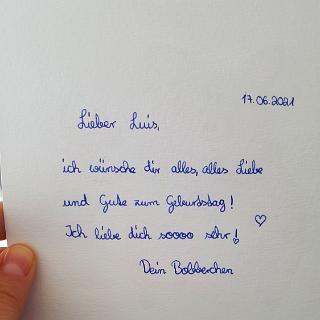 17.06.2021
Lieber Luis,
ich wünsche dir alles, alles Liebe
und Gute zum Geburtstag!
Ich liebe dich soooo sehr! ♡
Dein Bobberchen